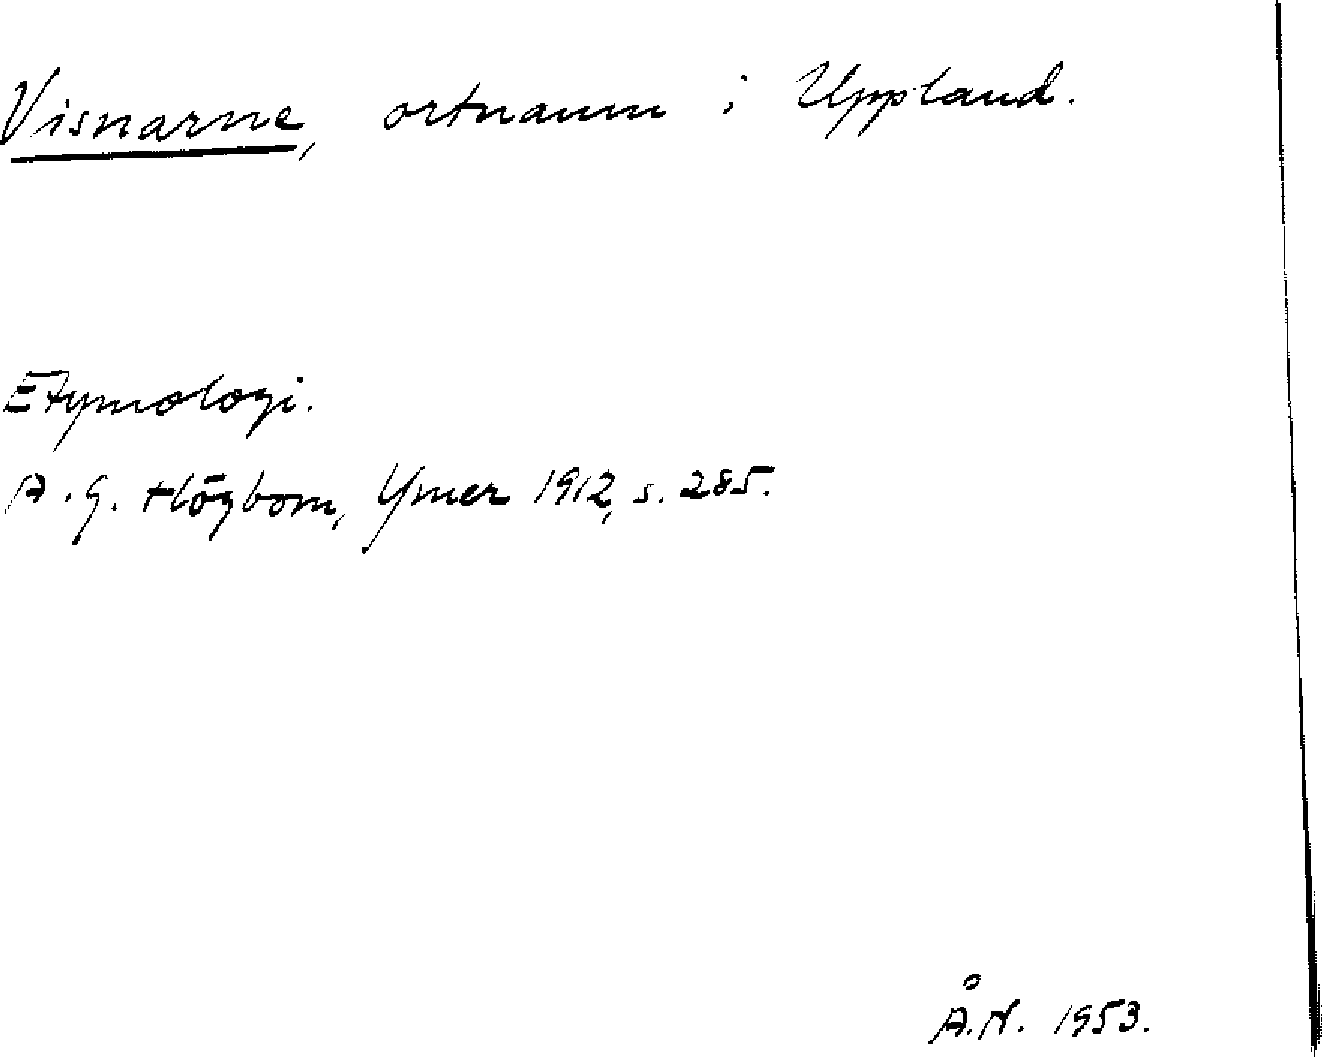 Visnarne, ortnamn i Uppland.
Etymologi.
A. G. Högbom, Ymer 1912, s. 285.
Å.N. 1953.